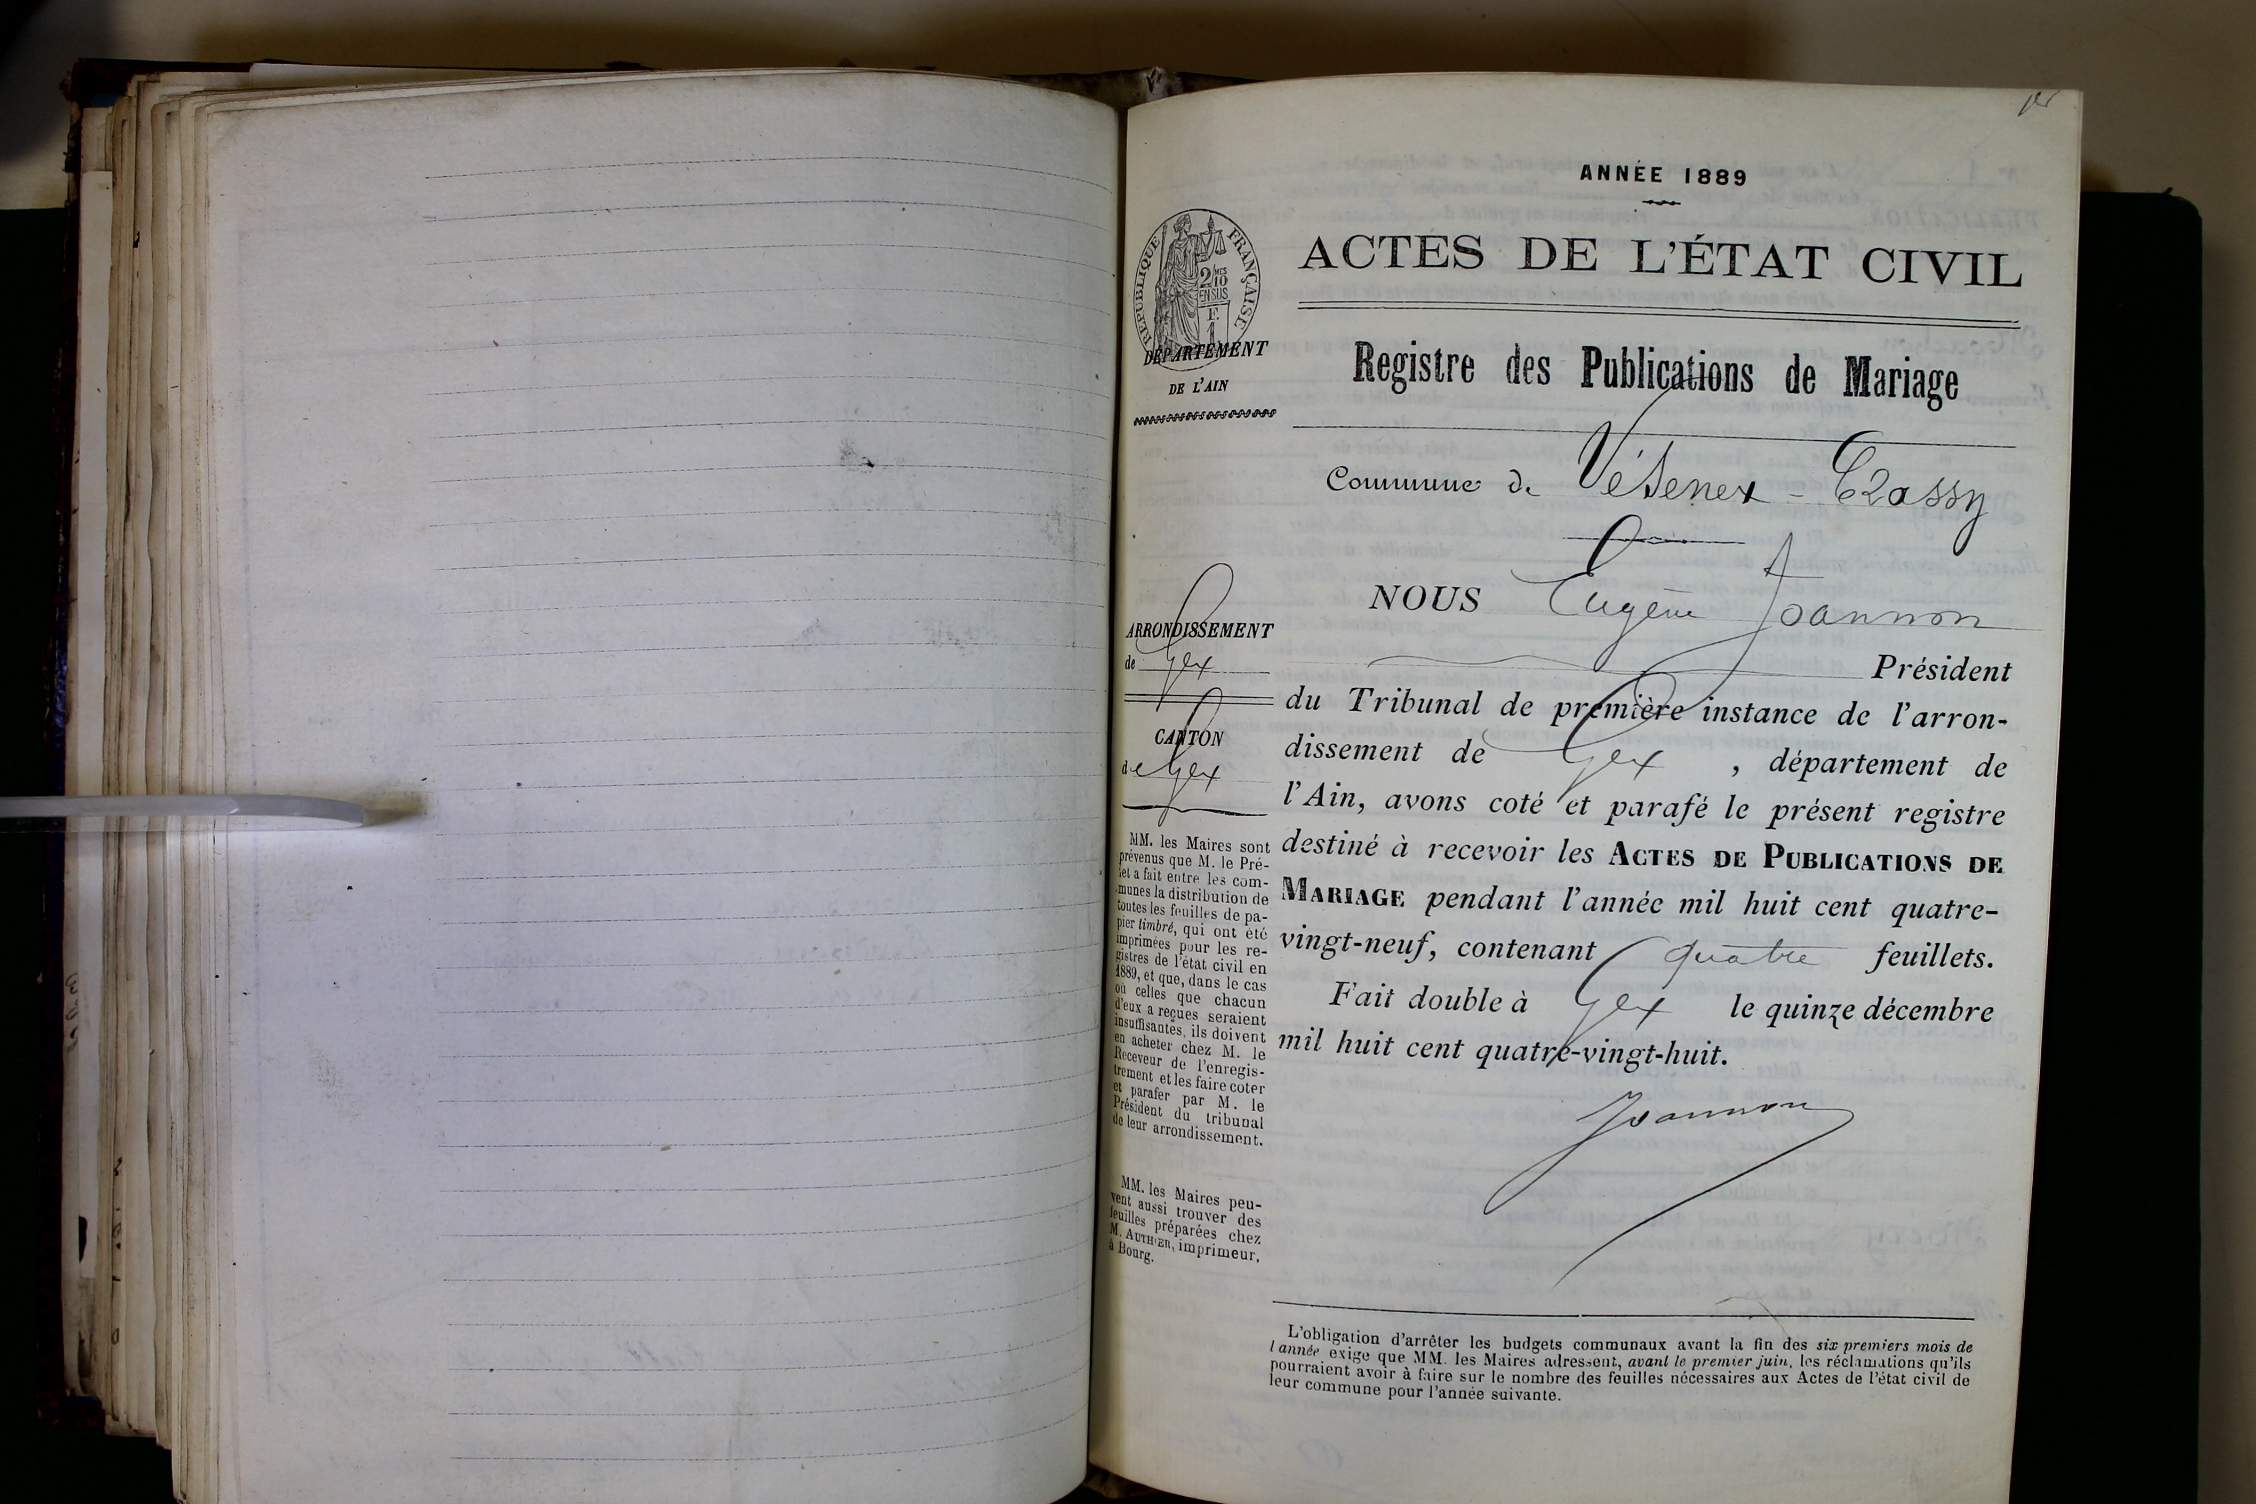 ANNÉE 1889
ACTES DE L'ÉTAT CIVIL
RÉPUBLIQUE FRANÇAISE
2/10
MES
EN SUS
F.
1
DÉPARTEMENT
DE L'AIN
Registre des Publications de Mariage
Commune de Vésenex - Crassy
NOUS Eugène Joannon
ARRONDISSEMENT
de Gex
CANTON
de Gex
Président
du Tribunal de première instance de l'arron-
dissement de Gex, département de
l'Ain, avons coté et parafé le présent registre
destiné à recevoir les ACTES DE PUBLICATIONS DE
MARIAGE pendant l'année mil huit cent quatre-
vingt-neuf, contenant quatre feuillets.
Fait double à Gex le quinze décembre
mil huit cent quatre-vingt-huit.
Joannon
MM. les Maires sont
prévenus que M. le Pré-
fet a fait entre les com-
munes la distribution de
toutes les feuilles de pa-
pier timbré, qui ont été
imprimées pour les re-
gistres de l'état civil en
1889, et que, dans le cas
où celles que chacun
d'eux a reçues seraient
insuffisantes, ils doivent
en acheter chez M. le
Receveur de l'enregis-
trement et les faire coter
et parafer par M. le
Président du tribunal
de leur arrondissement.
MM. les Maires peu-
vent aussi trouver des
feuilles préparées chez
M. AUTHIER, imprimeur,
à Bourg.
L'obligation d'arrêter les budgets communaux avant la fin des six premiers mois de
l'année exige que MM. les Maires adressent, avant le premier juin, les réclamations qu'ils
pourraient avoir à faire sur le nombre des feuilles nécessaires aux Actes de l'état civil de
leur commune pour l'année suivante.